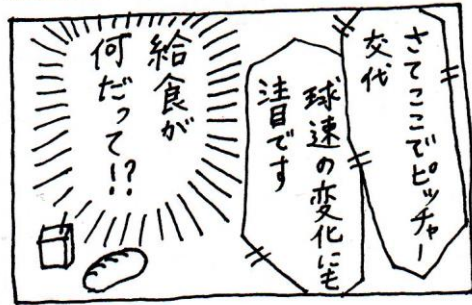 さてここでピッチャー
交代
球速の変化にも
注目です
給食が
何だって!?